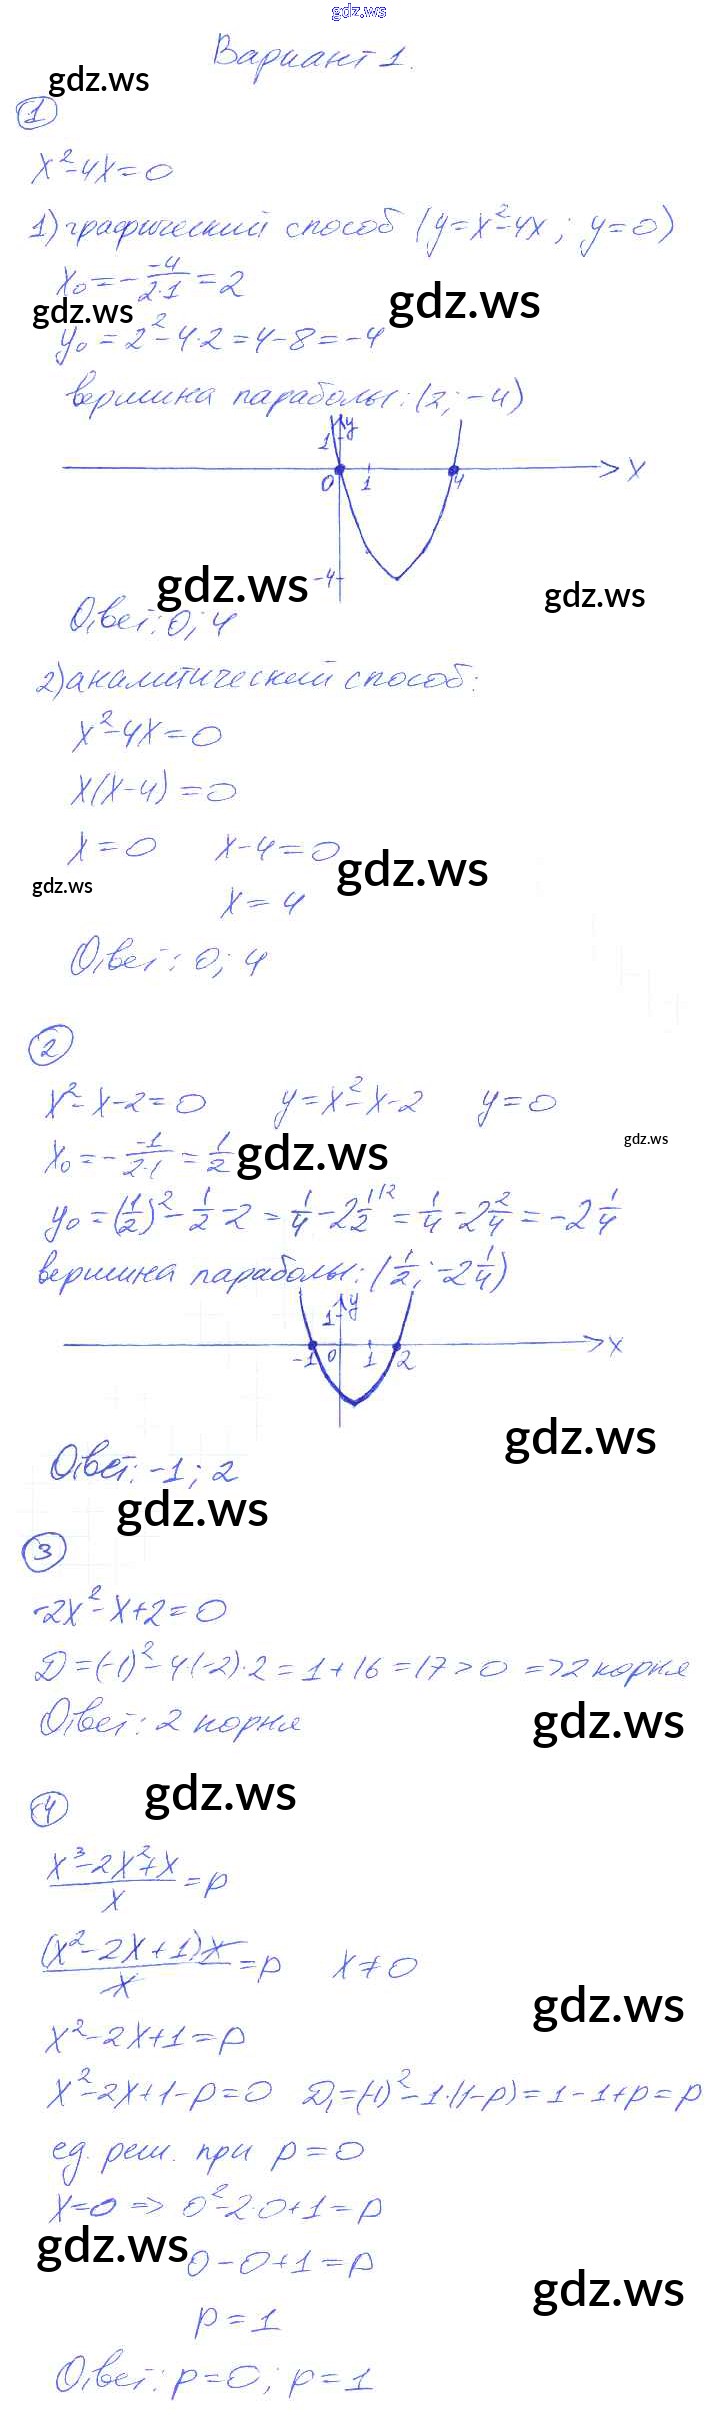 gdz.ws
Вариант 1.
gdz.ws
1
x²-4x=0
1) графический способ (y=x²-4x; y=0)
x₀=-\frac{-4}{2·1}=2
gdz.ws
gdz.ws
y₀=2²-4·2=4-8=-4
вершина параболы: (2; -4)
y
1
0 1 4 x
-4
gdz.ws
gdz.ws
Ответ: 0; 4
2) аналитический способ:
x²-4x=0
x(x-4)=0
x=0 x-4=0
gdz.ws
gdz.ws
x=4
Ответ: 0; 4
2
x²-x-2=0 y=x²-x-2 y=0
x₀=-\frac{-1}{2·1}=\frac{1}{2}
gdz.ws
gdz.ws
y₀=(\frac{1}{2})²-\frac{1}{2}-2=\frac{1}{4}-2\frac{1}{2}^{/2}=\frac{1}{4}-2\frac{2}{4}=-2\frac{1}{4}
вершина параболы: (\frac{1}{2}; -2\frac{1}{4})
y
1
-1 0 1 2 x
gdz.ws
Ответ: -1; 2
gdz.ws
3
-2x²-x+2=0
D=(-1)²-4·(-2)·2=1+16=17>0 =>2 корня
Ответ: 2 корня
gdz.ws
gdz.ws
4
\frac{x³-2x²+x}{x}=p
\frac{(x²-2x+1)x}{x}=p x≠0
gdz.ws
x²-2x+1=p
x²-2x+1-p=0 D₁=(-1)²-1·(1-p)=1-1+p=p
ед. реш. при p=0
x=0 => 0²-2·0+1=p
gdz.ws
0-0+1=p
gdz.ws
p=1
Ответ: p=0; p=1